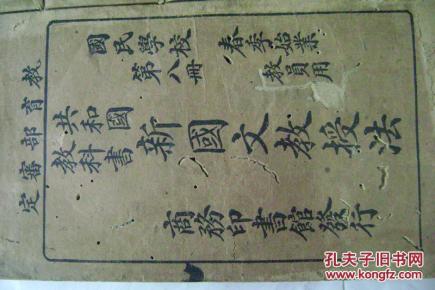 教育部審定
國民學校
第八冊
春季始業
教員用
共和國
教科書
新國文教授法
商務印書館發行
孔夫子旧书网
www.kongfz.com